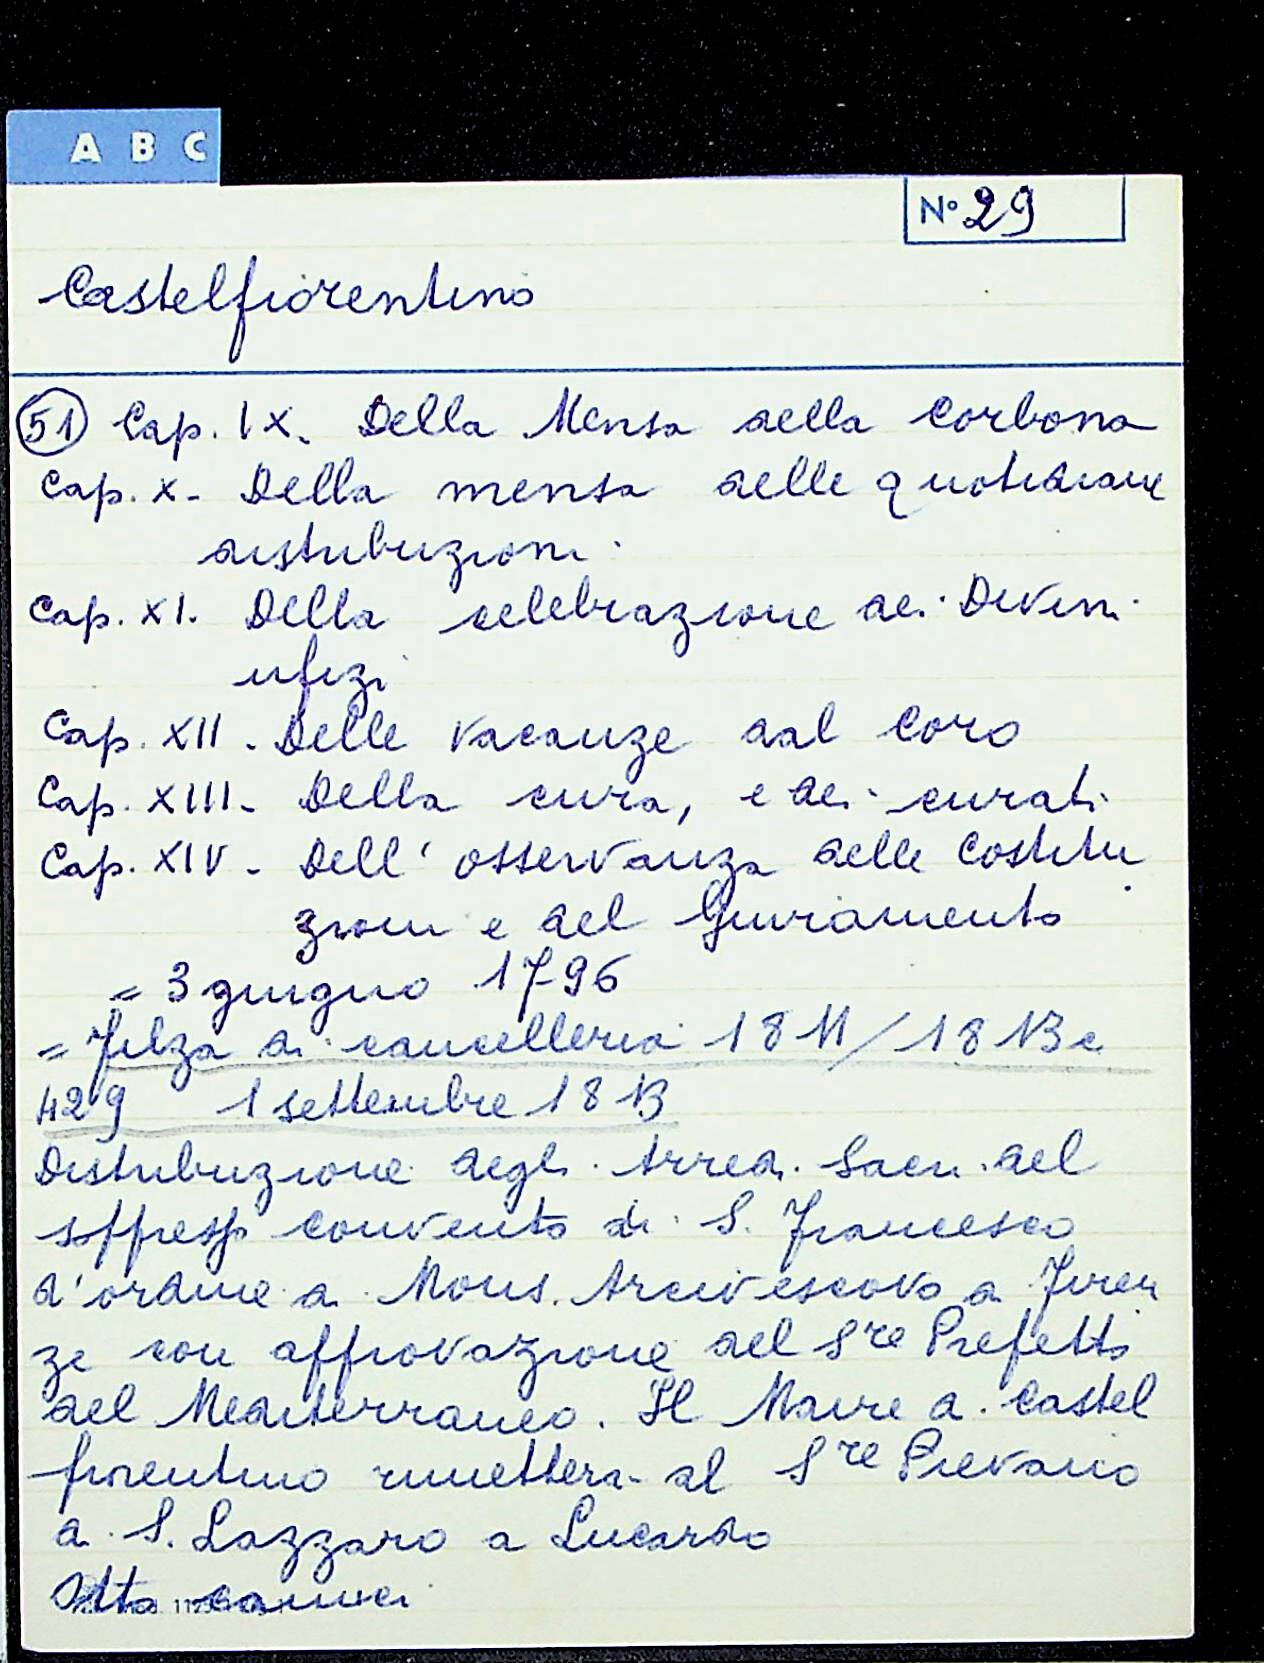 A B C
N° 29
Castelfiorentino
51 Cap. IX. Della Mensa della Corbona
Cap. X - Della mensa delle quotidiane
distribuzioni.
Cap. XI. Della celebrazione dei Divini
ufizi
Cap. XII - Delle vacanze dal Coro
Cap. XIII - Della cura, e dei curati
Cap. XIV - Dell' osservanza delle Costitu
zioni e del Giuramento
= 3 giugno 1796
= Filza di cancelleria 1811/1813 c
429 1 settembre 1813
Distribuzione degli Arredi Sacri del
soppresso convento di S. Francesco
d'ordine di Mons. Arcivescovo di Firen
ze con approvazione del Sre Prefetto
del Mediterraneo. Il Maire di Castel
fiorentino rimetterà al Sre Piovano
di S. Lazzaro a Lucardo
Otto camici